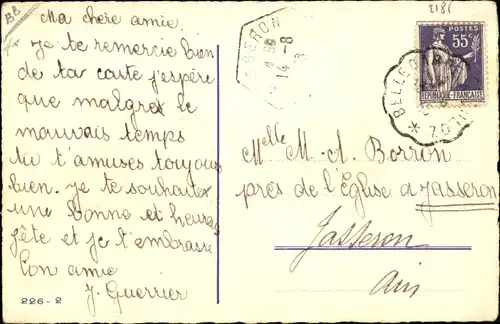 BB
Ma chere amie.
Je te remercie bien
de ta carte j'espère
que malgret le
mauvais temps
tu t'amuses toujours
bien. Je te souhaites
une bonne et heureuse
fête et je t'embrasse
Ton amie
J. Guerrier
226-2
14-8
2181
POSTES
55c
REPUBLIQUE FRANÇAISE
Melle M. A. Borron
près de l'Église a Jasseron
Jasseron
Ain